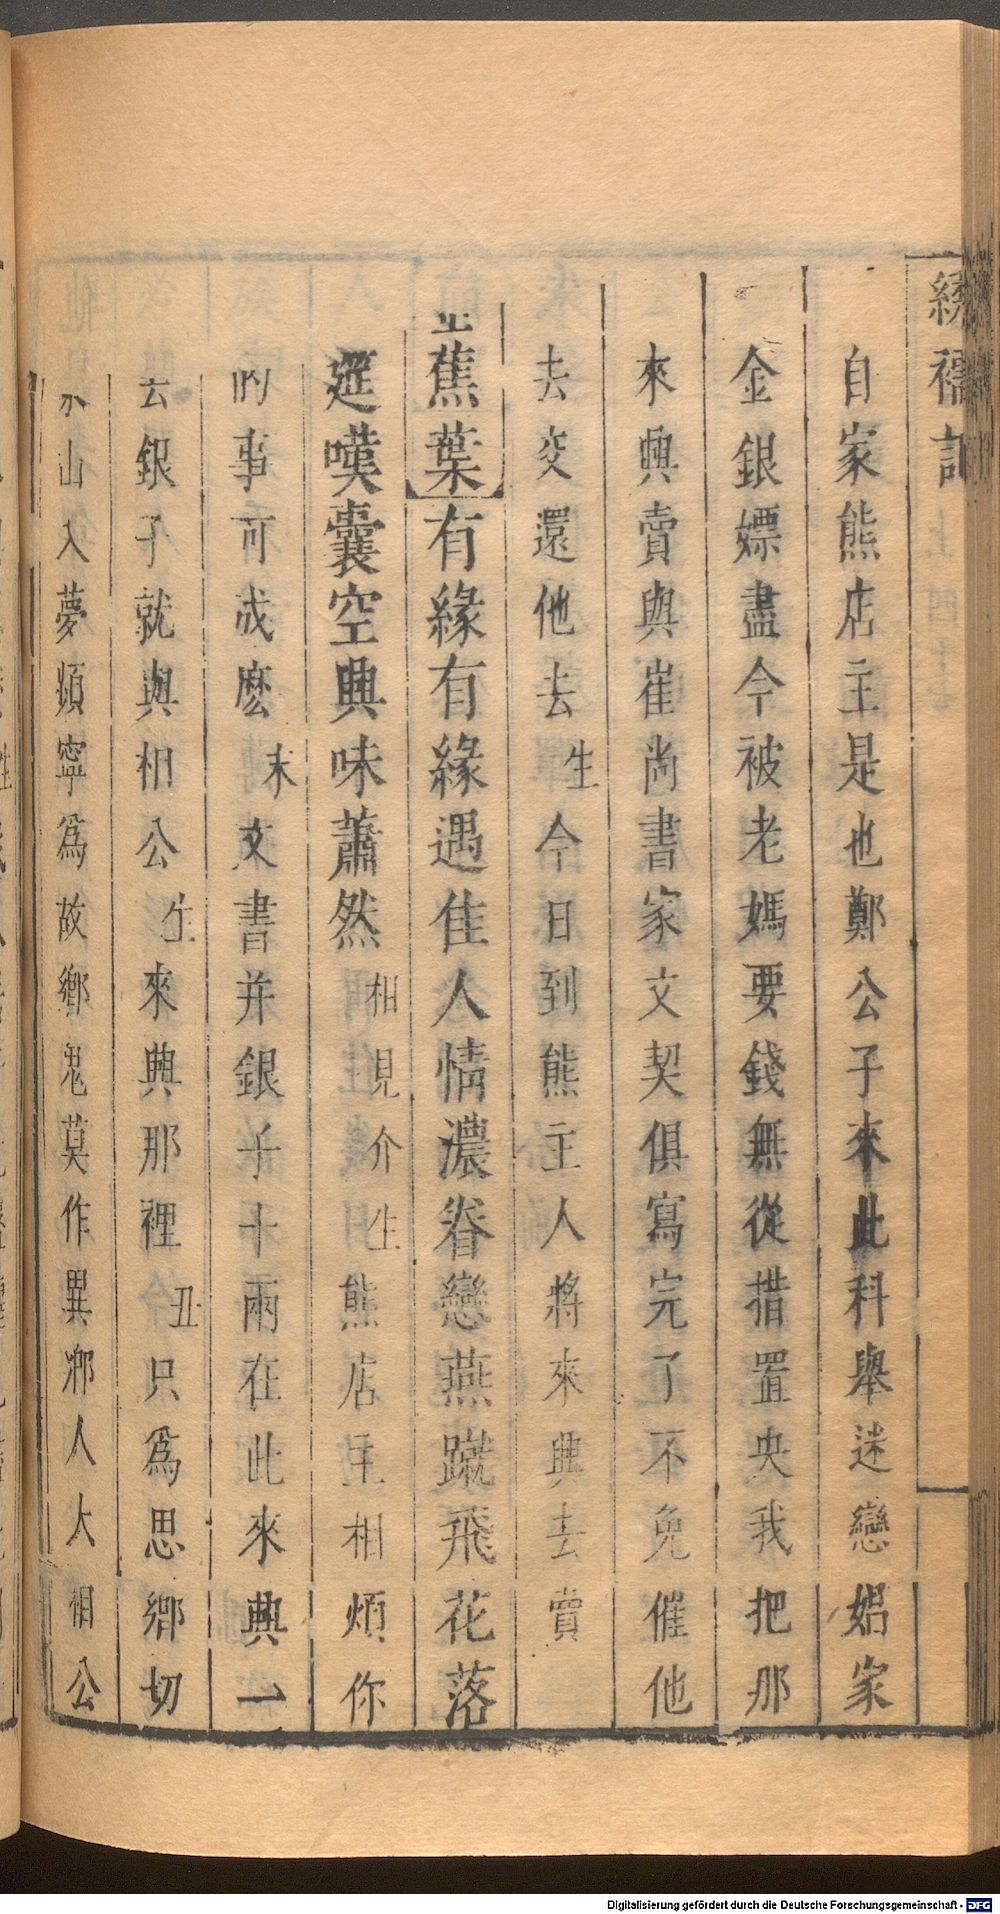 繡襦記
自家熊店主是也鄭公子來此科舉迷戀娼家
金銀嫖盡今被老媽要錢無從措置央我把那
來興賣與崔尚書家文契俱寫完了不免催他
去交還他去生今日到熊主人將來興去賣
蕉葉有緣有緣遇佳人情濃眷戀燕蹴飛花落
筵嘆囊空興味蕭然相見介生熊店主相煩你
的事可成麽末文書并銀子十兩在此來興一
去銀子就與相公生來興那裡丑只爲思鄉切
山入夢頻寧爲故鄉鬼莫作異鄉人大相公
Digitalisierung gefördert durch die Deutsche Forschungsgemeinschaft - DFG